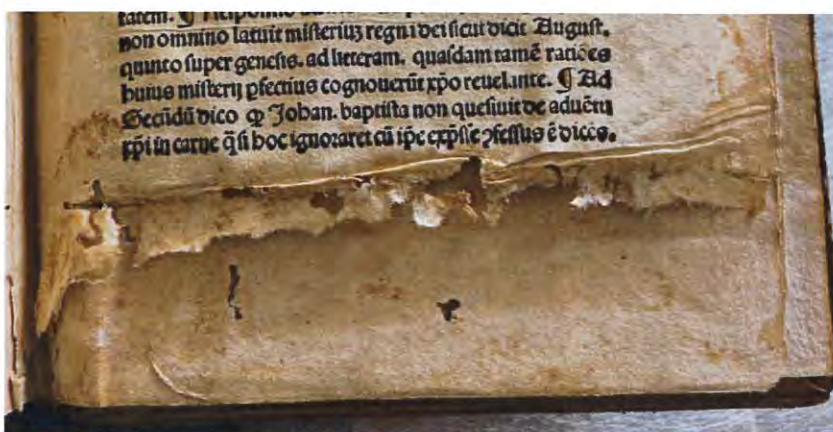 tatem. ¶ Respondeo
non omnino latuit misteriuʒ regni dei sicut dicit August.
quinto super genesis. ad litteram. quasdam tamē ratiões
huius misterij ꝑfectius cognouerūt xp̄o reuelante. ¶ Ad
Secūdū dico ꝙ Johan. baptista non quesiuit de aduētu
xp̄i in carne q̄si hoc ignoraret cū ip̄e exp̄sse ꝯfessus ē dicēs.